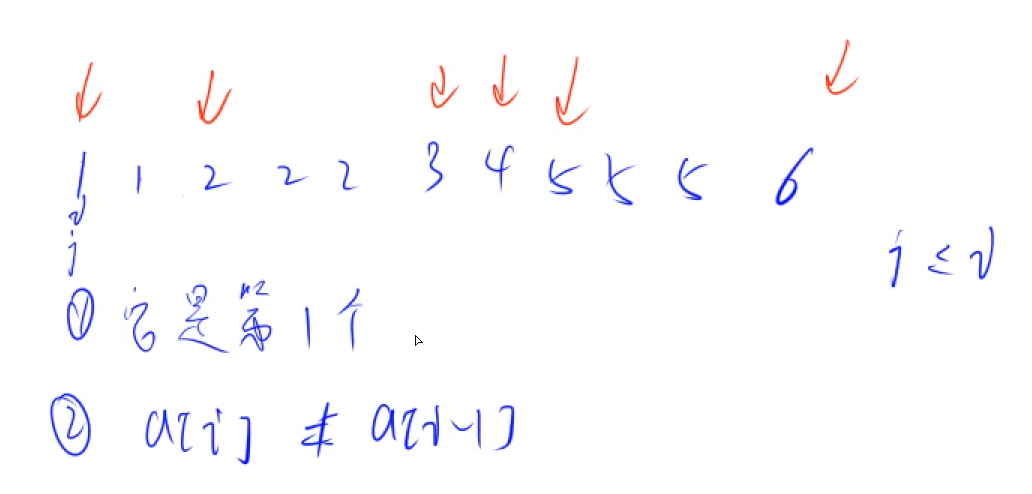 1 1 2 2 2 3 4 5 5 5 6
i
j
j ≤ i
① 它是第1个
② a[i] ≠ a[i-1]